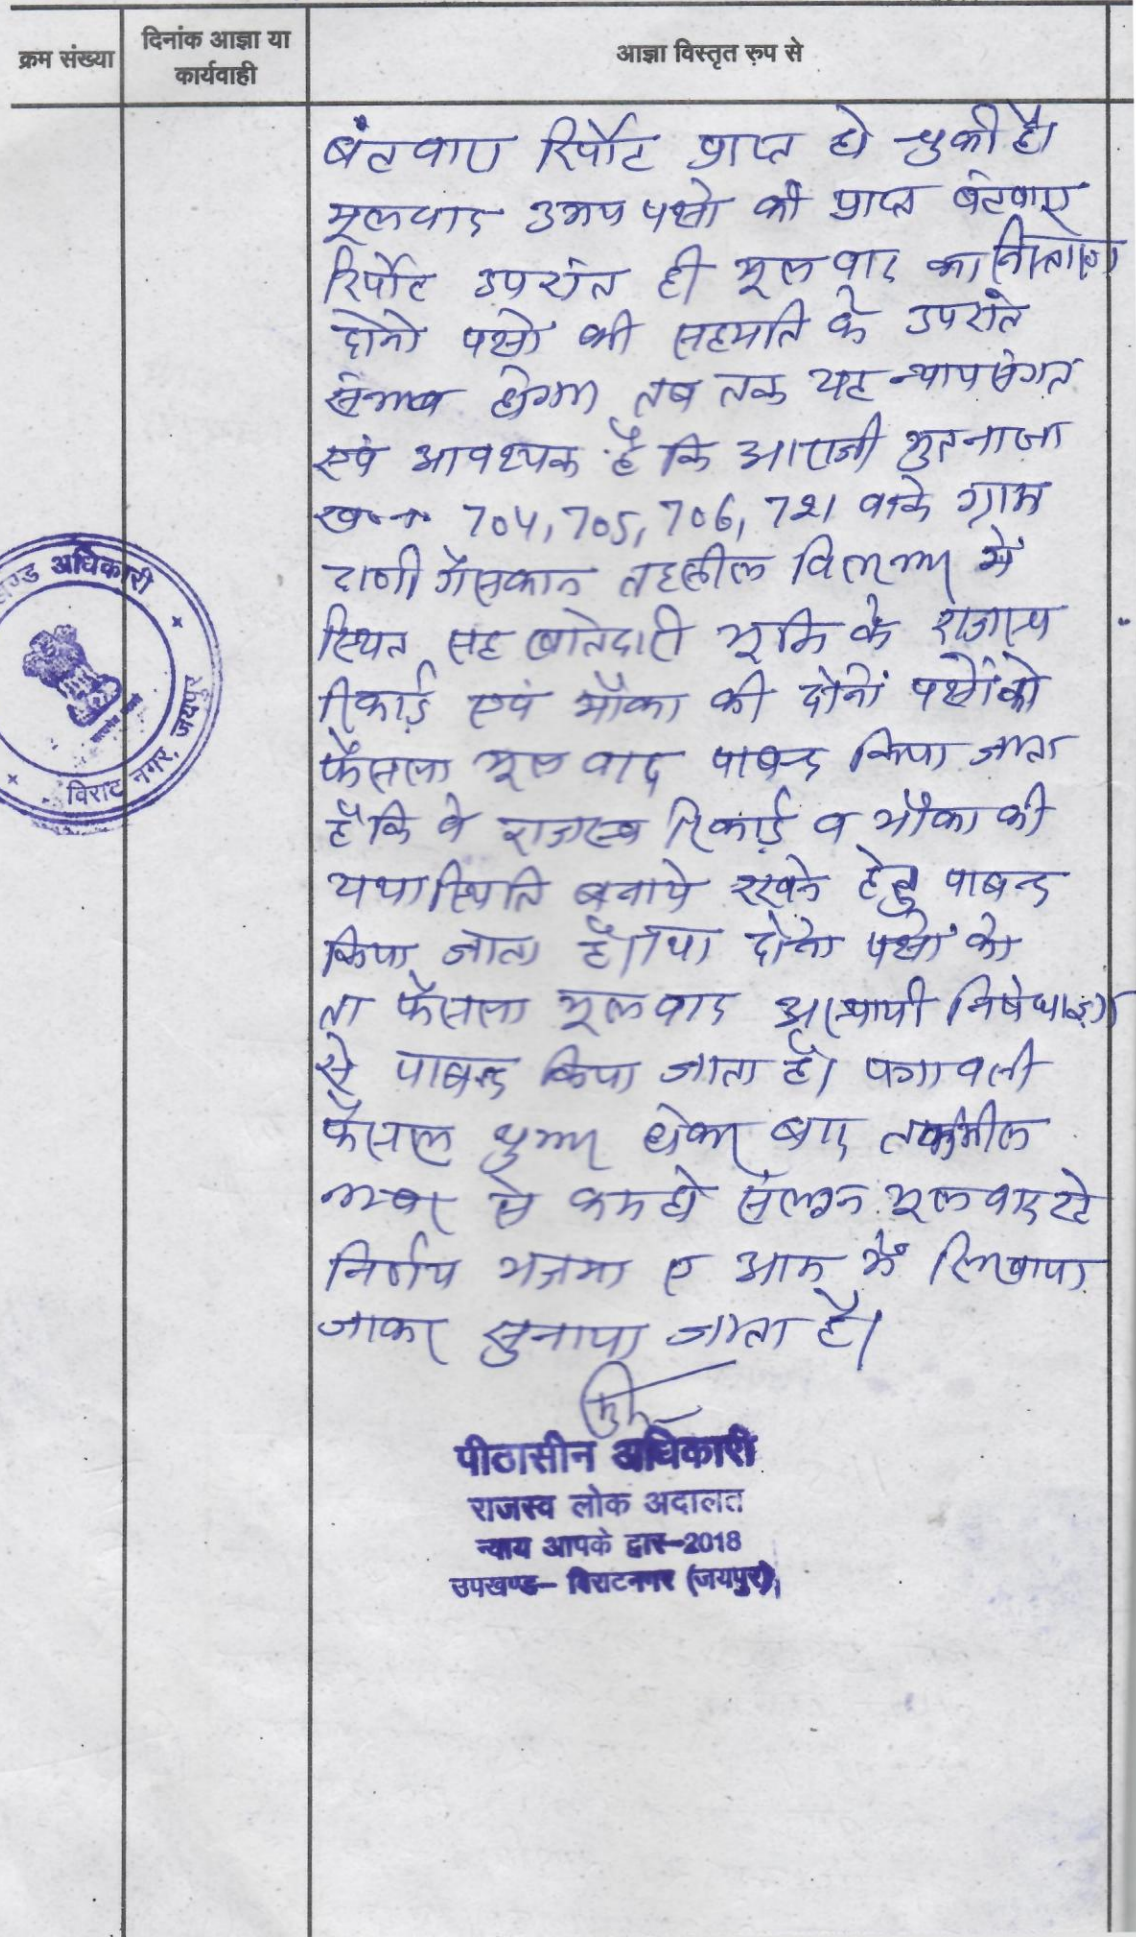 क्रम संख्या
दिनांक आज्ञा या
कार्यवाही
आज्ञा विस्तृत रुप से
बंटवारा रिर्पोट प्राप्त हो चुकी है।
मूलवाद उभय पक्षो की प्राप्त बंटवारा
रिर्पोट उपरांत ही मूल वाद का निस्तारण
दोनो पक्षो की सहमति के उपरांत
संभव होगा तब तक यह न्यायसंगत
एवं आवश्यक है कि आराजी मुतनाजा
ख०न० 704, 705, 706, 721 वाके ग्राम
ढाणी गैसकान तहसील विराटनगर में
स्थित सह खातेदारी भूमि के राजस्व
रिकार्ड एवं मौका की दोनों पक्षों को
फैसला मूल वाद पाबन्द किया जाता
है कि वे राजस्व रिकार्ड व मौका की
यथास्थिति बनाये रखने हेतु पाबन्द
किया जाता है। तथा दोनो पक्षों को
ता फैसला मूलवाद अस्थायी निषेधाज्ञा
से पाबन्द किया जाता है। पत्रावली
फैसल शुमार होकर बाद तकमील
नम्बर से कम हो संलग्न मूल वाद रहे
निर्णय मजमा ए आम में लिखाया
जाकर सुनाया जाता है।
पीठासीन अधिकारी
राजस्व लोक अदालत
न्याय आपके द्वार-2018
उपखण्ड- विराटनगर (जयपुर)
खण्ड अधिकारी
विराट नगर, जयपुर